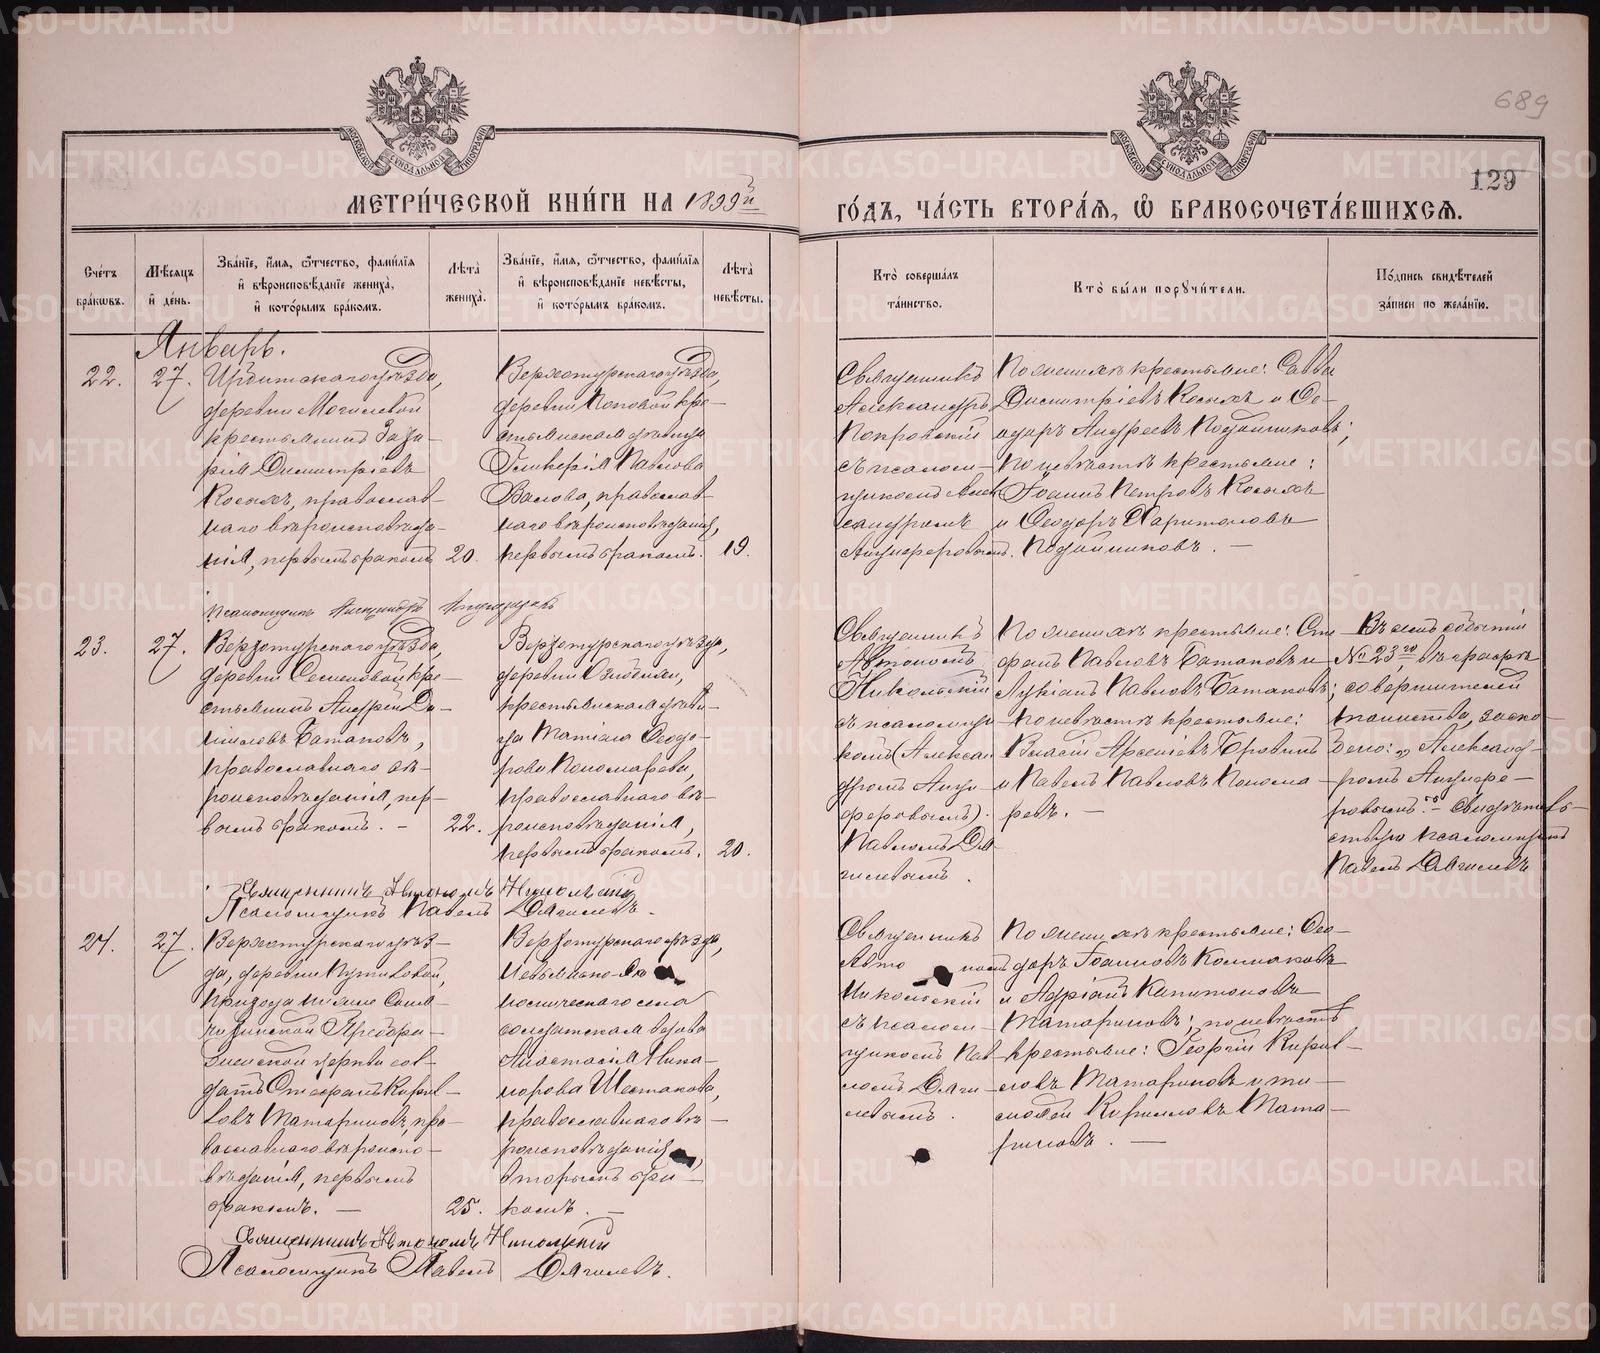 689
129
МЕТРИ́ЧЕСКОЙ КНИ́ГИ НА 1899й
ГО́ДЪ, ЧА́СТЬ ВТОРА́Я, Ѡ БРАКОСОЧЕТА́ВШИХСЯ.
Сче́тъ бра́кѡвъ.
Мѣ́сяцъ и̂ де́нь.
Зва́нїе, и́мя, ѻ́тчество, фами́лїя и̂ вѣроисповѣ́данїе жениха̀, и̂ кото́рымъ бра́комъ.
Лѣ́та жениха̀.
Зва́нїе, и́мя, ѻ́тчество, фами́лїя и̂ вѣроисповѣ́данїе невѣ́сты, и̂ кото́рымъ бра́комъ.
Лѣ́та невѣ́сты.
Кто̀ соверша́лъ та́инство.
Кто̀ бы́ли порꙋчи́тели.
По́дпись свидѣ́телей за́писи по жела́нїю.
Январь.
22.
27.
Ирбитскаго уѣзда,
деревни Могилевой
крестьянинъ Заха-
рія Димитріевъ
Косыхъ, православ-
наго вѣроисповѣда-
нія, первымъ бракомъ
20.
Верхотурскаго уѣзда,
деревни Поповой кре-
стьянская дѣвица
Гликерія Павлова
Вялова, православ-
наго вѣроисповѣданія,
первымъ бракомъ.
19.
Священникъ
Александръ
Покровскій
съ псалом-
щикомъ Алек
сандромъ
Анциферовымъ.
По женихѣ крестьяне: Савва
Димитріевъ Косыхъ и Ѳе-
одоръ Андреевъ Подойниковъ;
по невѣстѣ крестьяне:
Іоаннъ Петровъ Косыхъ
и Ѳеодоръ Харитоновъ
Подойниковъ. —
Псаломщикъ Александръ Анциферовъ
23.
27.
Верхотурскаго уѣзда,
деревни Семеновой кре-
стьянинъ Андрей Да-
ниловъ Батаковъ,
православнаго вѣ-
роисповѣданія, пер-
вымъ бракомъ. —
22.
Верхотурскаго уѣзда,
деревни
крестьянская дѣви-
ца Татіана Ѳеодо-
рова Пономарева,
православнаго вѣ-
роисповѣданія,
первымъ бракомъ.
20.
Священникъ
Автономъ
Никольскій
съ псаломщи-
комъ (Алексан
дромъ Анци-
феровымъ).
Павломъ Дя-
гилевымъ.
По женихѣ крестьяне: Сте-
фанъ Павловъ Батаковъ и
Лукіанъ Павловъ Батаковъ;
по невѣстѣ крестьяне:
Власій Арсеніевъ Бровинъ
и Павелъ Павловъ Понома-
ревъ. —
Въ семъ событіи
№ 23мъ въ графѣ
совершителей
таинства, заско-
блено: „Александ-
ромъ Анцифе-
ровымъ“. — Свидѣтель-
ствую псаломщикъ
Павелъ Дягилевъ
Священникъ Автономъ Никольскій
Псаломщикъ Павелъ Дягилевъ.
24.
27.
Верхотурскаго уѣз-
да, деревни Путиловой,
прихода
Преобра-
женской церкви сол-
датъ Стефанъ Кирил-
ловъ Татариновъ, пра-
вославнаго вѣроиспо-
вѣданія, первымъ
бракомъ. —
25.
Верхотурскаго уѣзда,
села
солдатская вдова
Анастасія Ника-
норова Шестакова,
православнаго вѣ-
роисповѣданія,
вторымъ бра-
комъ. —
Священникъ
Автономъ
Никольскій
съ псалом-
щикомъ Пав-
ломъ Дяги-
левымъ.
По женихѣ крестьяне: Ѳео-
доръ Іоанновъ Колмаковъ
и Адріанъ Капитоновъ
Татариновъ; по невѣстѣ
крестьяне: Георгій Кирил-
ловъ Татариновъ и Ти-
моѳей Кирилловъ Тата-
риновъ. —
Священникъ Автономъ Никольскій
Псаломщикъ Павелъ Дягилевъ.